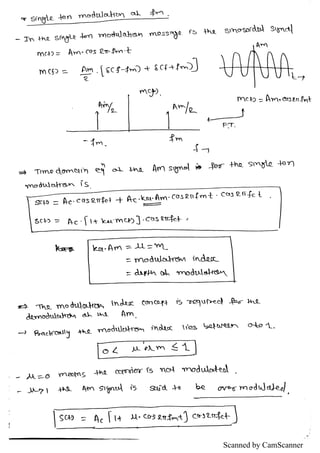 * Single ton modulation of fm.
- In the single ton modulation message is the sinosoidal signal
Am
m(t) = Am. cos 2πfmt
m(f) = Am/2 . [δ(f-fm) + δ(f+fm)]
t→
m(f).
m(t) = Am.cos2πfmt
Am/2
Am/2
F.T.
- fm.
fm
f →
⇒ Time domain eqn of the Am signal for the single ton
modulation is.
s(t) = Ac.cos2πfct + Ac.ka.Am.cos2πfmt . cos2πfct.
s(t) = Ac.[1+ ka m(t)].cos2πfct.
ka.Am = μ = m
= modulation index
= depth of modulation
⇒ The modulation index concept is required for the
demodulation of the Am.
→ Practically the modulation index lies between 0 to 1.
0 < μ or m ≤ 1
- μ=0 means the carrier is not modulated.
- μ>1 the Am signal is said to be over modulated.
s(t) = Ac [1+ μ.cos2πfmt] cos2πfct
Scanned by CamScanner